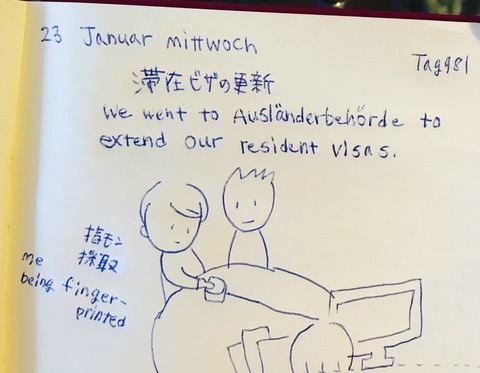 23 Januar mittwoch
Tag981
滞在ビザの更新
We went to Ausländerbehörde to
extend our resident visas.
指モン
採取
me
being finger-
printed